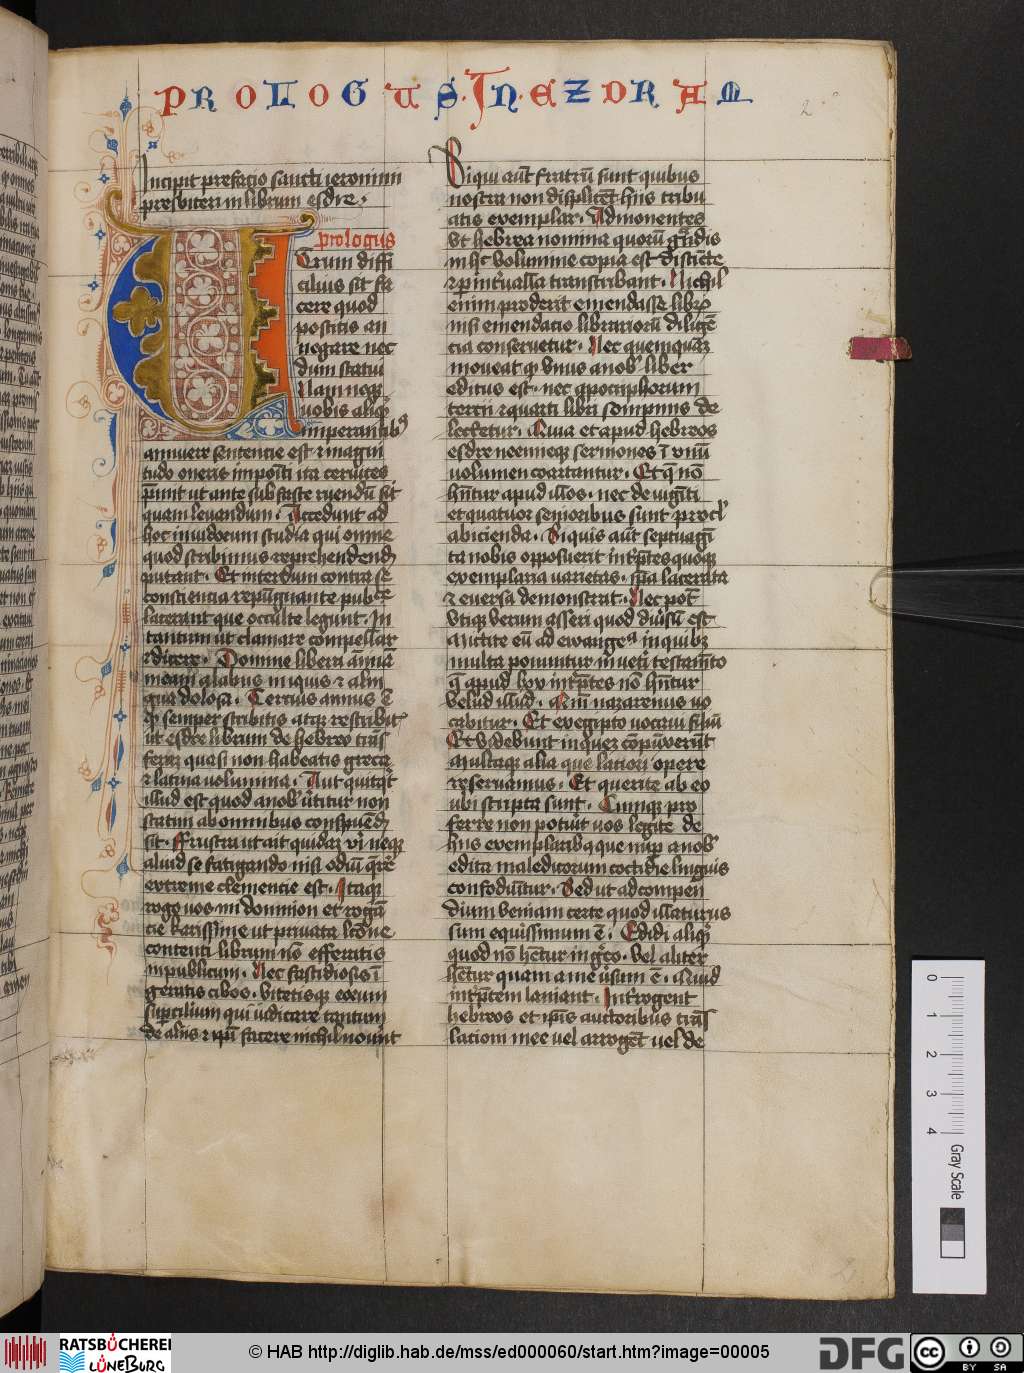 PROLOGUS IN EZDRAM
2
Incipit prefatio sancti ieronimi
presbiteri in librum esdre.
prologus
Utrum diffi
cilius sit fa
cere quod
poscitis an
negare nec
dum statui
Nam neqz
uobis aliqd
imperantibz
annuere sentencie est et magni
tudo oneris imposti ita ceruices
pmit ut ante sub fasce ruendū sit
quam leuandum. Accedunt ad
hoc inuidorum studia qui omne
quod scribimus reprehendendū
putant. Et interdum contra se
consciencia repugnante publice
lacerant que occulte legunt. In
tantum ut clamare compellar
et dicere. Domine libera animā
meam a labiis iniquis et a lin
gua dolosa. Tercius annus ē
qd semper scribitis atqz rescribitis
ut esdre librum de hebreo trās
feram quasi non habeatis greca
et latina uolumina. Aut quitqt
illud est quod a nob utitur non
statim ab omnibus conspuendū
sit. Frustra ut ait quidam niti neqz
aliud se fatigando nisi odiū querere
extreme clemencie est. Itaqz
rogo uos mi domnion et roga
cie karissime ut priuata lcōne
contenti librum nō efferatis
in publicum. Nec fastidiosis ī
geratis cibos. Vitetisqz eorum
supcilium qui iudicare tantum
de aliis et ipī facere nichil nouūt
Siqui aūt fratrū sunt quibus
nostra non displicēt hiis tribu
atis exemplar. Admonentes
vt hebrea nomina quorū gndis
in hoc volumine copia est distincte
et p intualla transcribant. Nichil
enim proderit emendasse libro
nisi emendacio librariorū diligē
cia conseruetur. Nec quemquaz
moueat qd vnus a nob liber
editus est. nec apocriphorum
tercii et quarti libri sompniis de
lectetur. Quia et apud hebreos
esdre neemieqz sermones ī vnū
uolumen coartantur. Et que nō
hntur apud illos. nec de viginti
et quatuor senioribus sunt procl
abicienda. Siquis aūt septuagī
ta nobis opposuerit intptes quoqz
exemplaria varietas ipa lacerata
et euersa demonstrat. Nec potest
vtiqz verum asseri quod diusū est
Mittite eū ad ewangelia in quibz
multa ponuntur in veti testamēto
que apud lxx intptes nō hntur
velud illud. Qm nazarenus uo
cabitur. Et ex egipto uocaui filiū
Et videbunt in quez cōpūxerūt
Multaqz alia que laciori opere
reseruamus. Et querite ab eo
ubi scripta sunt. Cumqz pro
ferre non potuit uos legite de
hiis exemplaribz que nup a nob
edita maledicorum cottidie linguis
confodiūtur. Sed ut ad compen
dium veniam certe quod illaturus
sum equissimum ē. Edidi aliqd
quod nō hetur in greco. Vel aliter
hētur quam a me uersum ē. Quid
intptem laniant. Interrogent
hebreos et ipīs auctoribus trās
lacioni mee uel arrogēt uel de
0 1 2 3 4
Gray Scale
RATSBÜCHEREI
LÜNEBURG
© HAB http://diglib.hab.de/mss/ed000060/start.htm?image=00005
DFG
cc BY SA